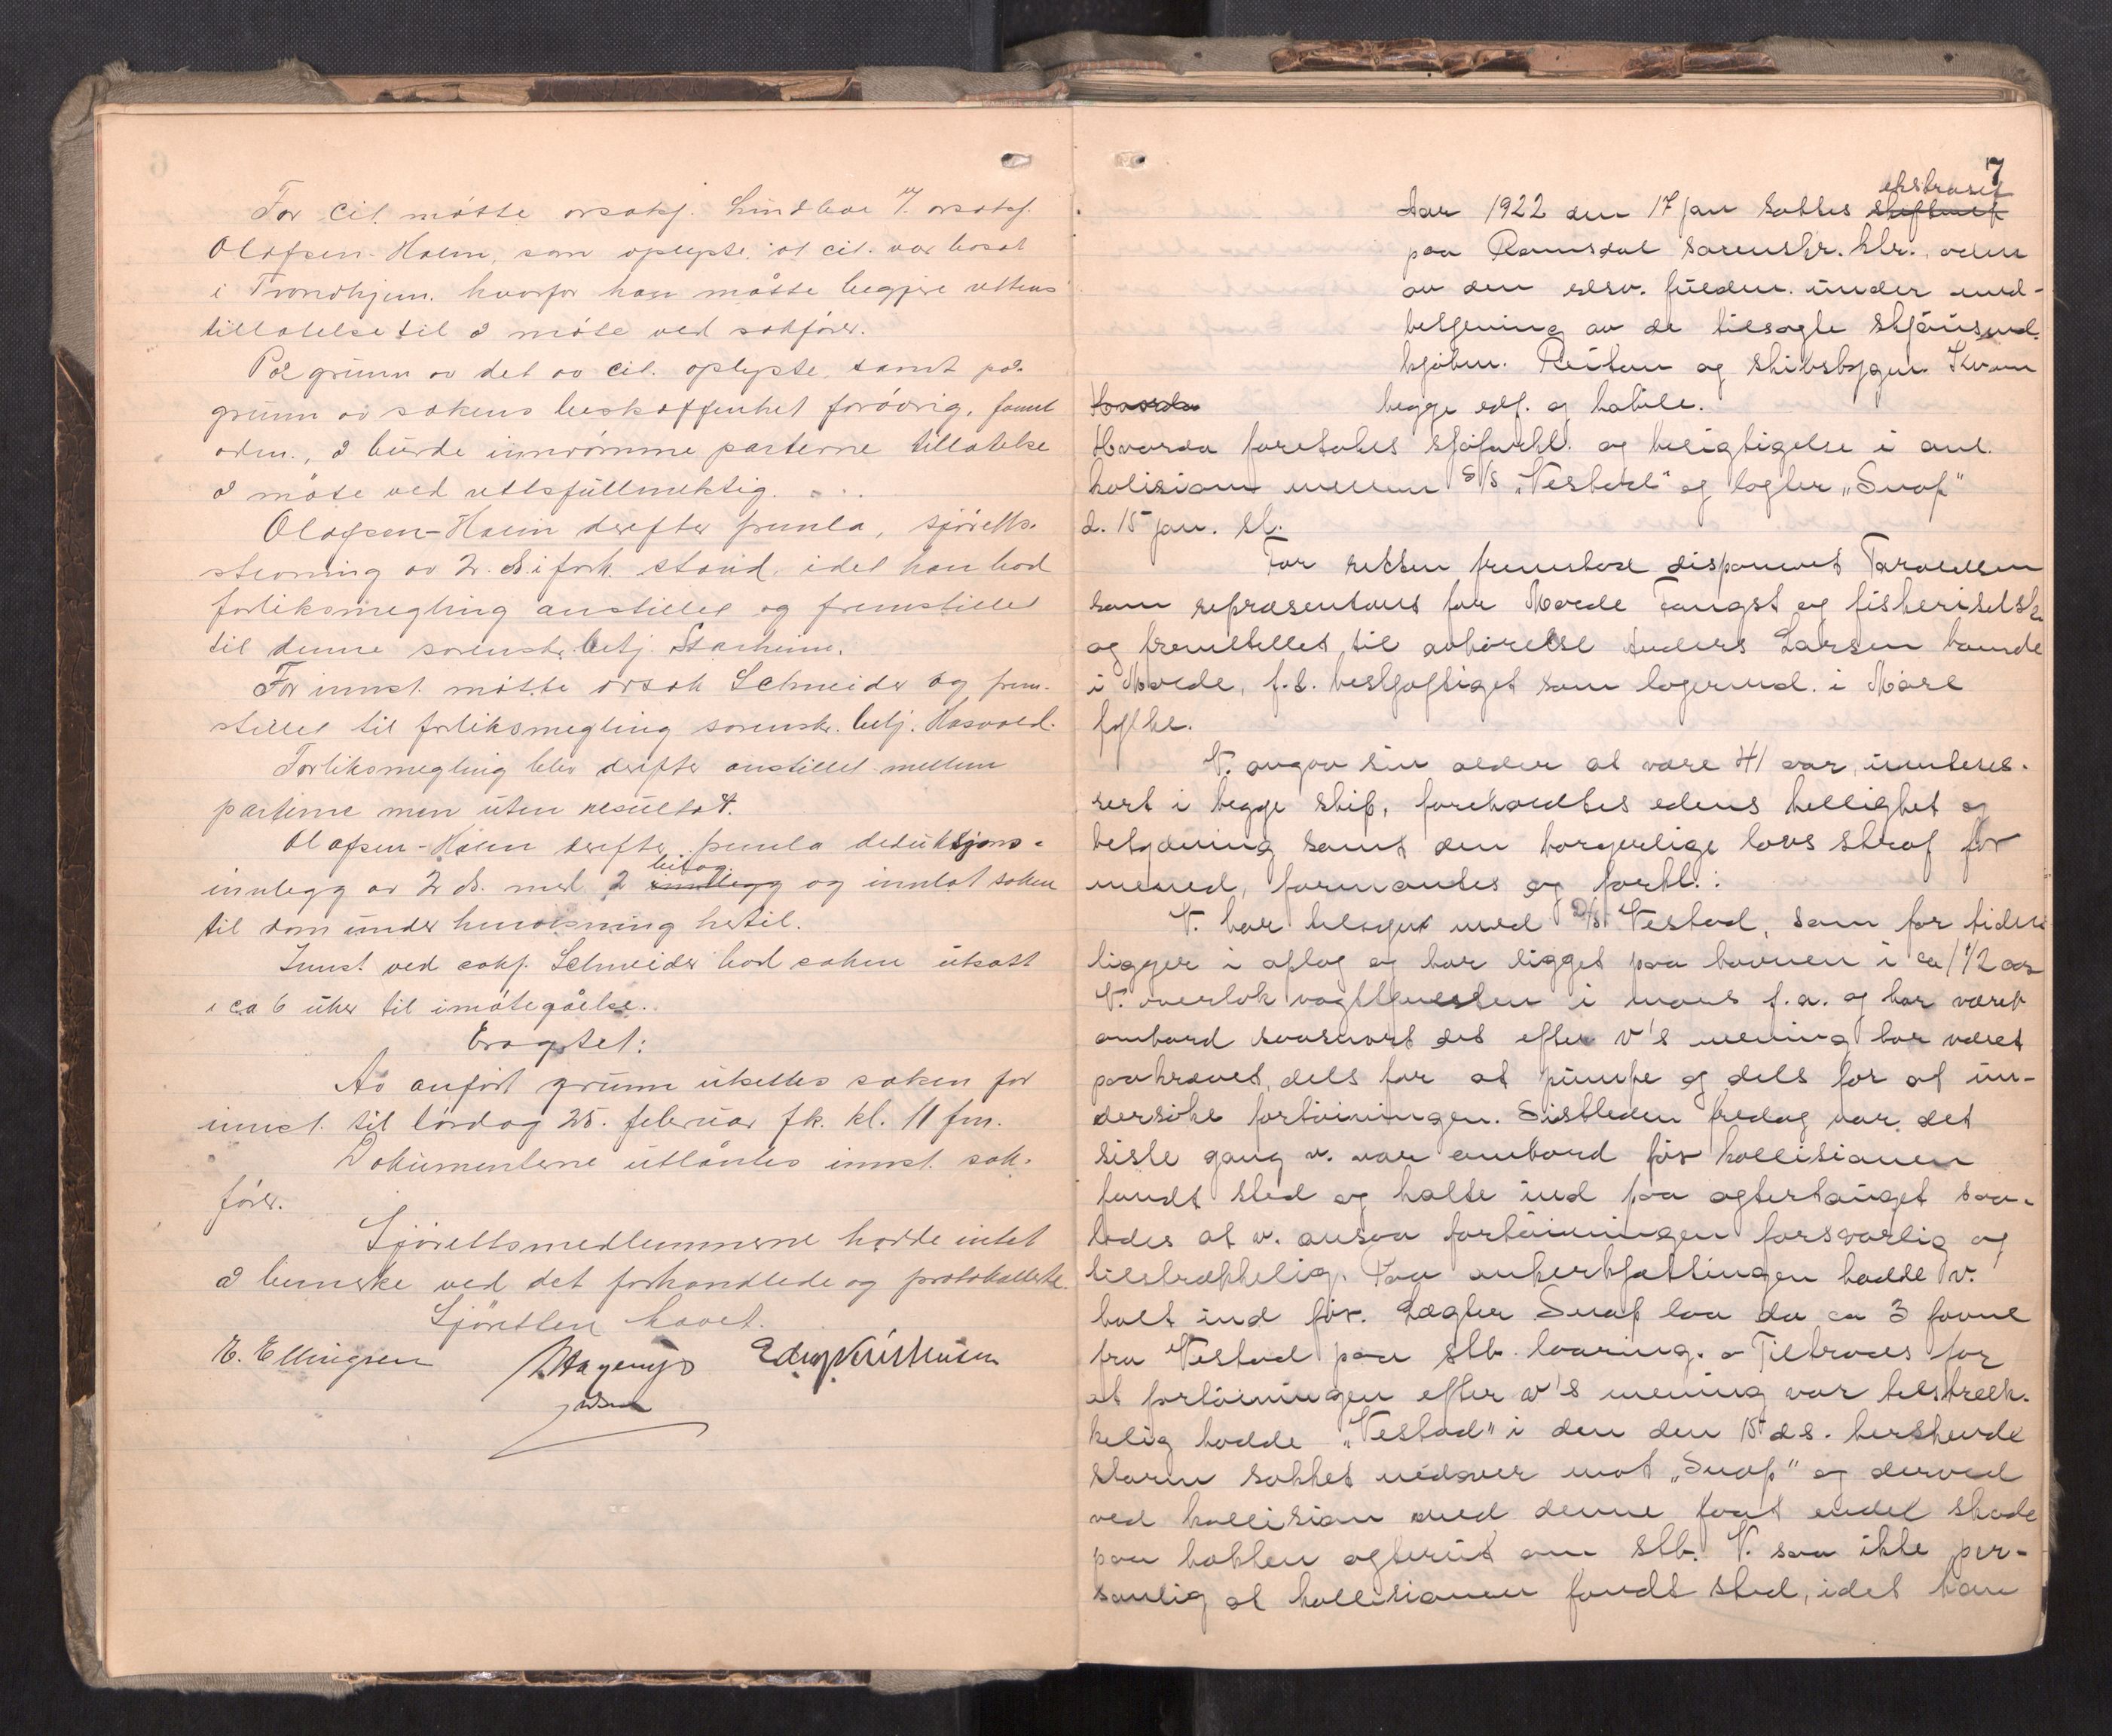 For cit. møtte orsakf. Lindboe v. orsakf.
Olafsen-Holm, som oplyste, at cit. var bosat
i Trondhjem, hvorfor han måtte begjære rettens
tillatelse til å møte ved sakfører.
På grunn av det av cit. oplyste, samt på
grunn av sakens beskaffenhet forøvrig, fannt
adm., å burde innrømme parterne tillatelse
å møte ved rettsfullmektig.
Olafsen-Holm derefter fremla, sjøretts-
stevning av 2. ds. i fork. stand, idet han bad
forliksmegling anstillet og fremstillet
til denne sorenskr. betj. Starheim.
For innst. møtte orsak Schneider og frem-
stillet til forliksmegling sorenskr. betj. Hasvold.
Forliksmegling blev derefter anstillet mellem
parterne men uten resultat.
Olafsen-Holm derefter fremla deduksjons-
bilag
innlegg av 2. ds. med 2 innlegg og innlot saken
til dom under henvisning hertil.
Innst. ved sakf. Schneider bad saken utsatt
i ca 6 uker til imøtegåelse.
Eragtet:
Av anført grunn utsettes saken for
innst. til lørdag 25. februar fk. kl. 11 fm.
Dokumenterne utlåntes innst. sak-
fører.
Sjørettsmedlemmerne hadde intet
å bemerke ved det forhandlede og protokollerte.
Sjøretten hævet.
E. Ellingsen
7
ekstraret
Aar 1922 den 17 jan sattes
paa Romsdal sorenskr. ktr., adm
av den edsv. fuldm. under med-
betjening av de tilsagte skjønsmd.
kjøbm. Reitan og skibsbygger Kvam
Hvorda
begge edf. og habile.
Hvorda foretokes sjøforkl. og besigtigelse i anl.
kolisjon mellem S/S "Vestad" og lægter "Snap"
d. 15 jan. sl.
For retten fremstod disponent Taraldsen
som repræsentant for Molde Fangst og fiskeriselsk.
og fremstillet til avhørelse Anders Larsen boende
i Molde, f.t. beskjæftiget som lagermd. i Møre
fylke.
V. angav sin alder at være 41 aar, uinteres-
sert i begge skip, foreholdtes edens hellighet og
betydning samt den borgerlige lovs straf for
mened, formantes og forkl.:
V. har tilsynet med D/S Vestad, som for tiden
ligger i oplag og har ligget paa havnen i ca 1 1/2 aar
V. overtok vagttjenesten i mars f.a. og har været
ombord saasnart det efter v's mening har været
paakrævet, dels for at pumpe og dels for at un-
dersøke fortøiningen. Sistleden fredag var det
siste gang v. var ombord før kollisionen
fandt sted og halte ind paa agtertauget saa-
ledes at v. ansaa fortøiningen forsvarlig og
tilstrækkelig. Paa ankerkjættingen hadde v.
halt ind før. Lægter Snap laa da ca 3 favne
fra Vestad paa stb. laaring. Tiltrods for
at fortøiningen efter v's mening var tilstræk-
kelig hadde "Vestad" i den den 15 ds. herskende
storm sakket nedover mot "Snap" og derved
ved kollision med denne faat endel skade
paa hækken agterut om stb. V. saa ikke per-
sonlig at kollisionen fandt sted, idet han